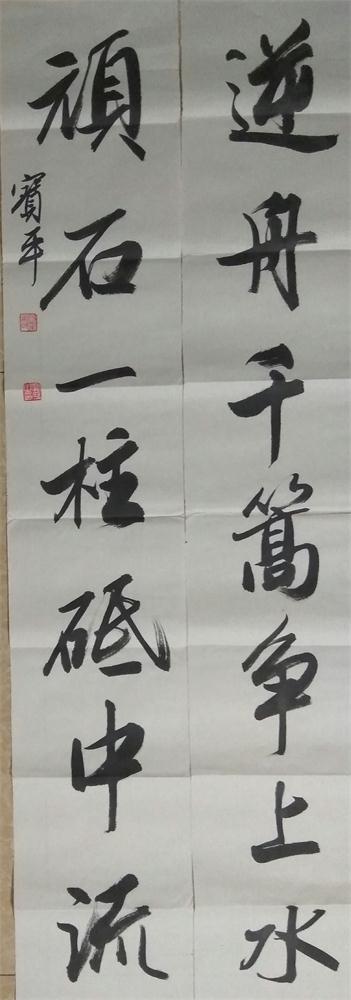 逆舟千篙争上水
頑石一柱砥中流
寳平